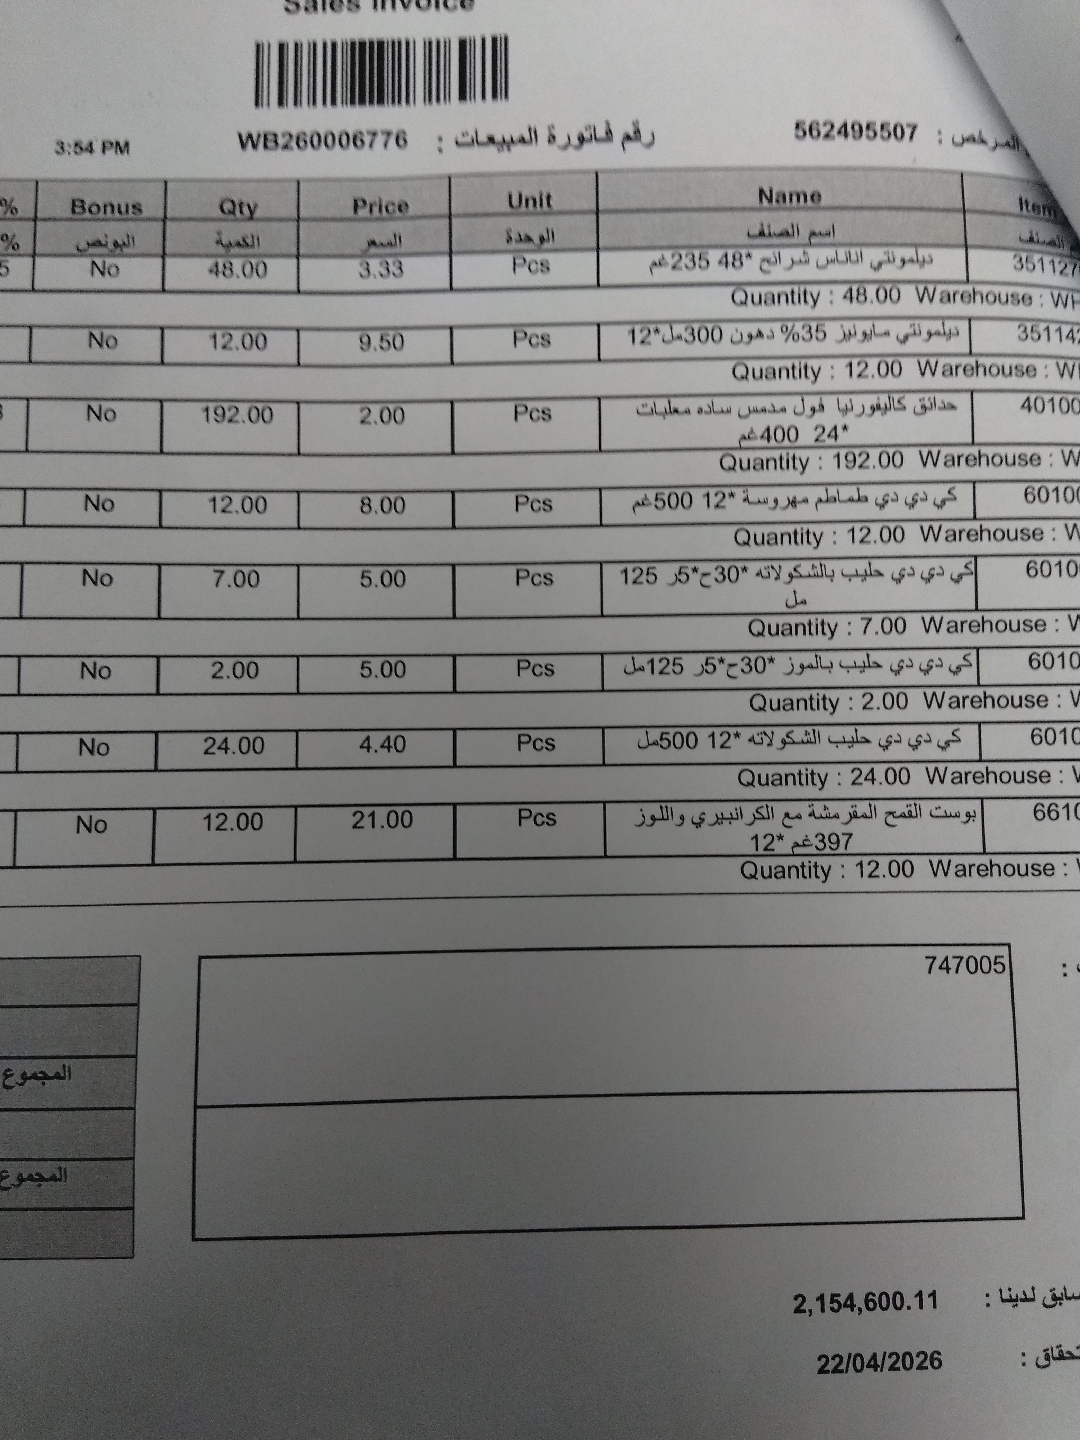 Sales Invoice
562495507 : المرخص
رقم فاتورة المبيعات : WB260006776
3:54 PM
Item Name Unit Price Qty Bonus %
اسم الصنف الوحدة السعر الكمية البونص %
351127 ديلمونتي اناناس شرائح *48 235غم Pcs 3.33 48.00 No 5
Quantity : 48.00 Warehouse :
35114 ديلمونتي مايونيز 35% دهون 300مل*12 Pcs 9.50 12.00 No
Quantity : 12.00 Warehouse :
40100 حدائق كاليفورنيا فول مدمس ساده معلبات Pcs 2.00 192.00 No
*24 400غم
Quantity : 192.00 Warehouse :
6010 كي دي دي طماطم مهروسة *12 500غم Pcs 8.00 12.00 No
Quantity : 12.00 Warehouse :
6010 كي دي دي حليب بالشكولاته *30ح*5ر 125 Pcs 5.00 7.00 No
مل
Quantity : 7.00 Warehouse :
6010 كي دي دي حليب بالموز *30ح*5ر 125مل Pcs 5.00 2.00 No
Quantity : 2.00 Warehouse :
6010 كي دي دي حليب الشكولاته *12 500مل Pcs 4.40 24.00 No
Quantity : 24.00 Warehouse :
6610 بوست القمح المقرمشة مع الكرانبيري واللوز Pcs 21.00 12.00 No
397غم *12
Quantity : 12.00 Warehouse :
747005
المجموع
المجموع
سابق لدينا : 2,154,600.11
تحقاق : 22/04/2026